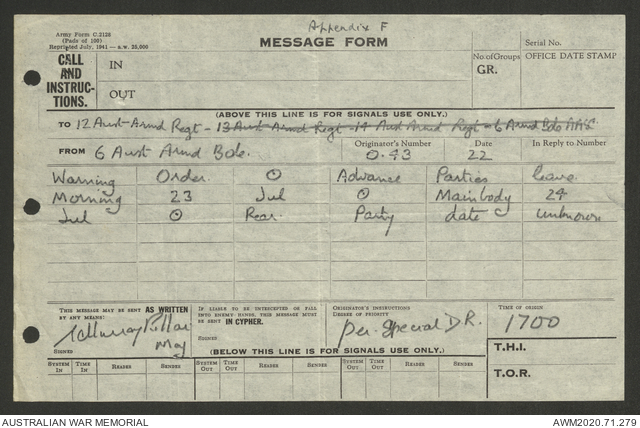 Appendix F
Army Form C.2128
(Pads of 100)
Reprinted July, 1941 — a.w. 35,000
MESSAGE FORM
Serial No.
CALL AND INSTRUCTIONS.
IN
OUT
No. of Groups
GR.
OFFICE DATE STAMP
(ABOVE THIS LINE IS FOR SIGNALS USE ONLY.)
TO 12 Aust Armd Regt - 13 Aust Armd Regt - 14 Aust Armd Regt - 6 Armd Bde AAS
FROM 6 Aust Armd Bde.
Originator's Number
0.43
Date
22
In Reply to Number
Warning Order. O Advance Parties leave
Morning 23 Jul O Mainbody 24
Jul O Rear. Party date unknown
THIS MESSAGE MAY BE SENT AS WRITTEN BY ANY MEANS:
SIGNED
Maj
IF LIABLE TO BE INTERCEPTED OR FALL INTO ENEMY HANDS, THIS MESSAGE MUST BE SENT IN CYPHER.
SIGNED
ORIGINATOR'S INSTRUCTIONS
DEGREE OF PRIORITY
per. Special D.R.
TIME OF ORIGIN
1700
T.H.I.
T.O.R.
(BELOW THIS LINE IS FOR SIGNALS USE ONLY.)
SYSTEM IN TIME IN READER SENDER SYSTEM OUT TIME OUT READER SENDER SYSTEM OUT TIME OUT READER SENDER
AUSTRALIAN WAR MEMORIAL
AWM2020.71.279